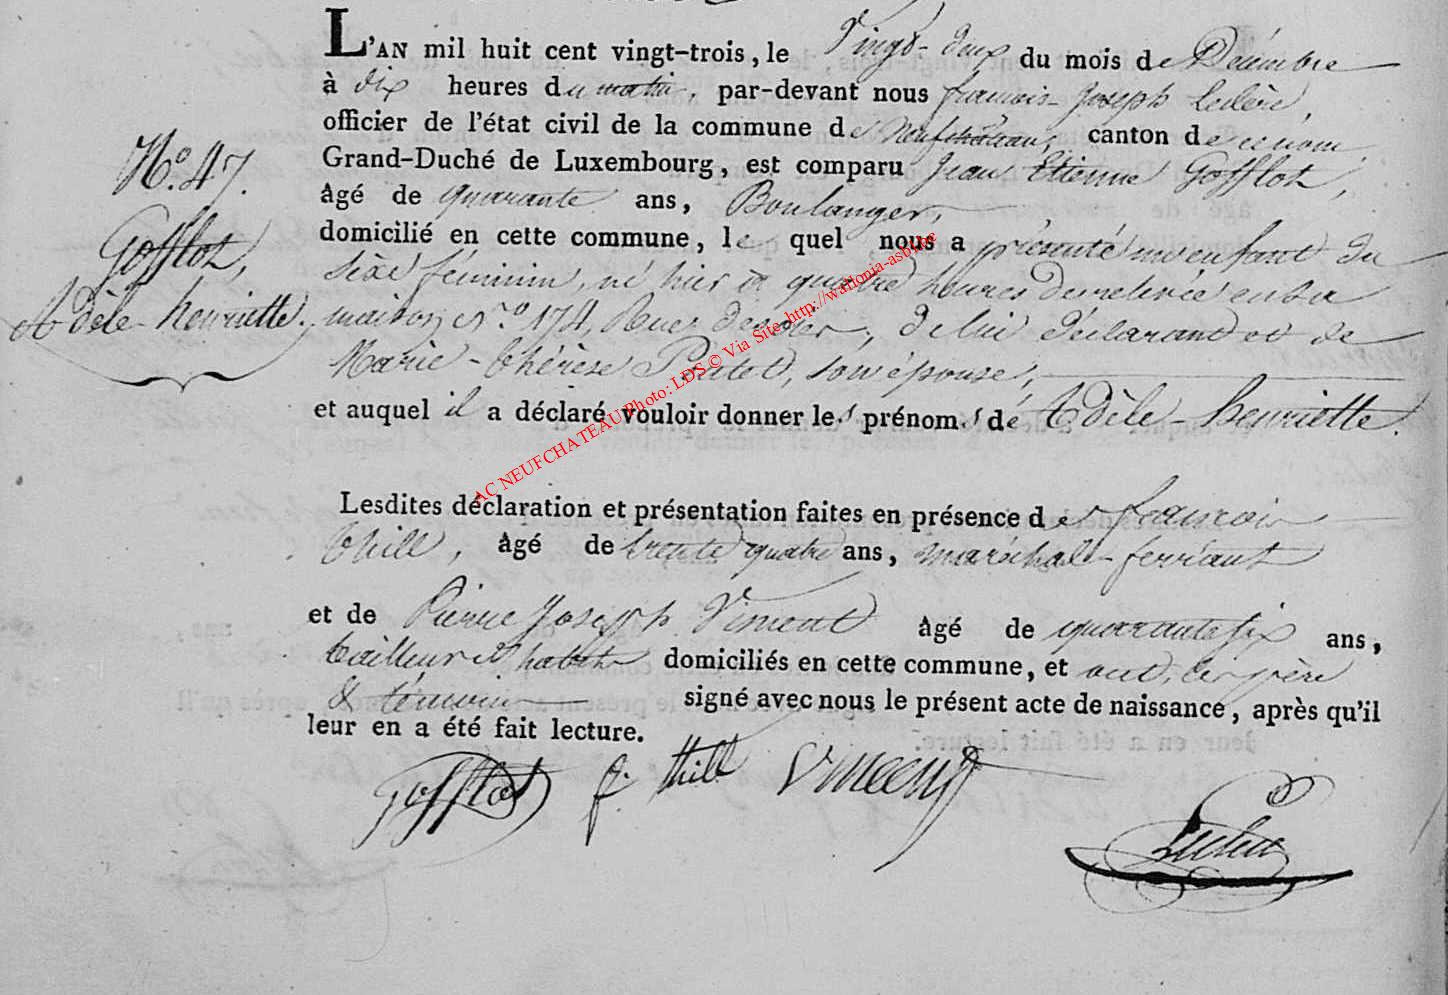 L'AN mil huit cent vingt-trois, le Vingt-deux du mois de Décembre
à dix heures du matin, par-devant nous françois-Joseph Leclerc,
officier de l'état civil de la commune de Neufchâteau, canton de ce nom,
Grand-Duché de Luxembourg, est comparu Jean Etienne Gofflot,
âgé de quarante ans, Boulanger,
domicilié en cette commune, lequel nous a présenté un enfant du
sexe féminin, né hier à quatre heures de relevée en sa
maison, n.º 174, Rue, de lui déclarant et de
Marie-thérèse Pratet, son épouse,
et auquel il a déclaré vouloir donner les prénoms de Adèle-henriette.
Nº. 47.
Gofflot,
Adèle-henriette.
Lesdites déclaration et présentation faites en présence de françois
thill, âgé de trente quatre ans, maréchal-ferrant
et de Pierre Joseph Vincent âgé de quarante six ans,
tailleur d'habits domiciliés en cette commune, et ont, les père
& témoins signé avec nous le présent acte de naissance, après qu'il
leur en a été fait lecture.
Gofflot f. thill Vincent
Leclerc
AC NEUFCHATEAU Photo: LDS © Via Site http://wallonia-asbl.be